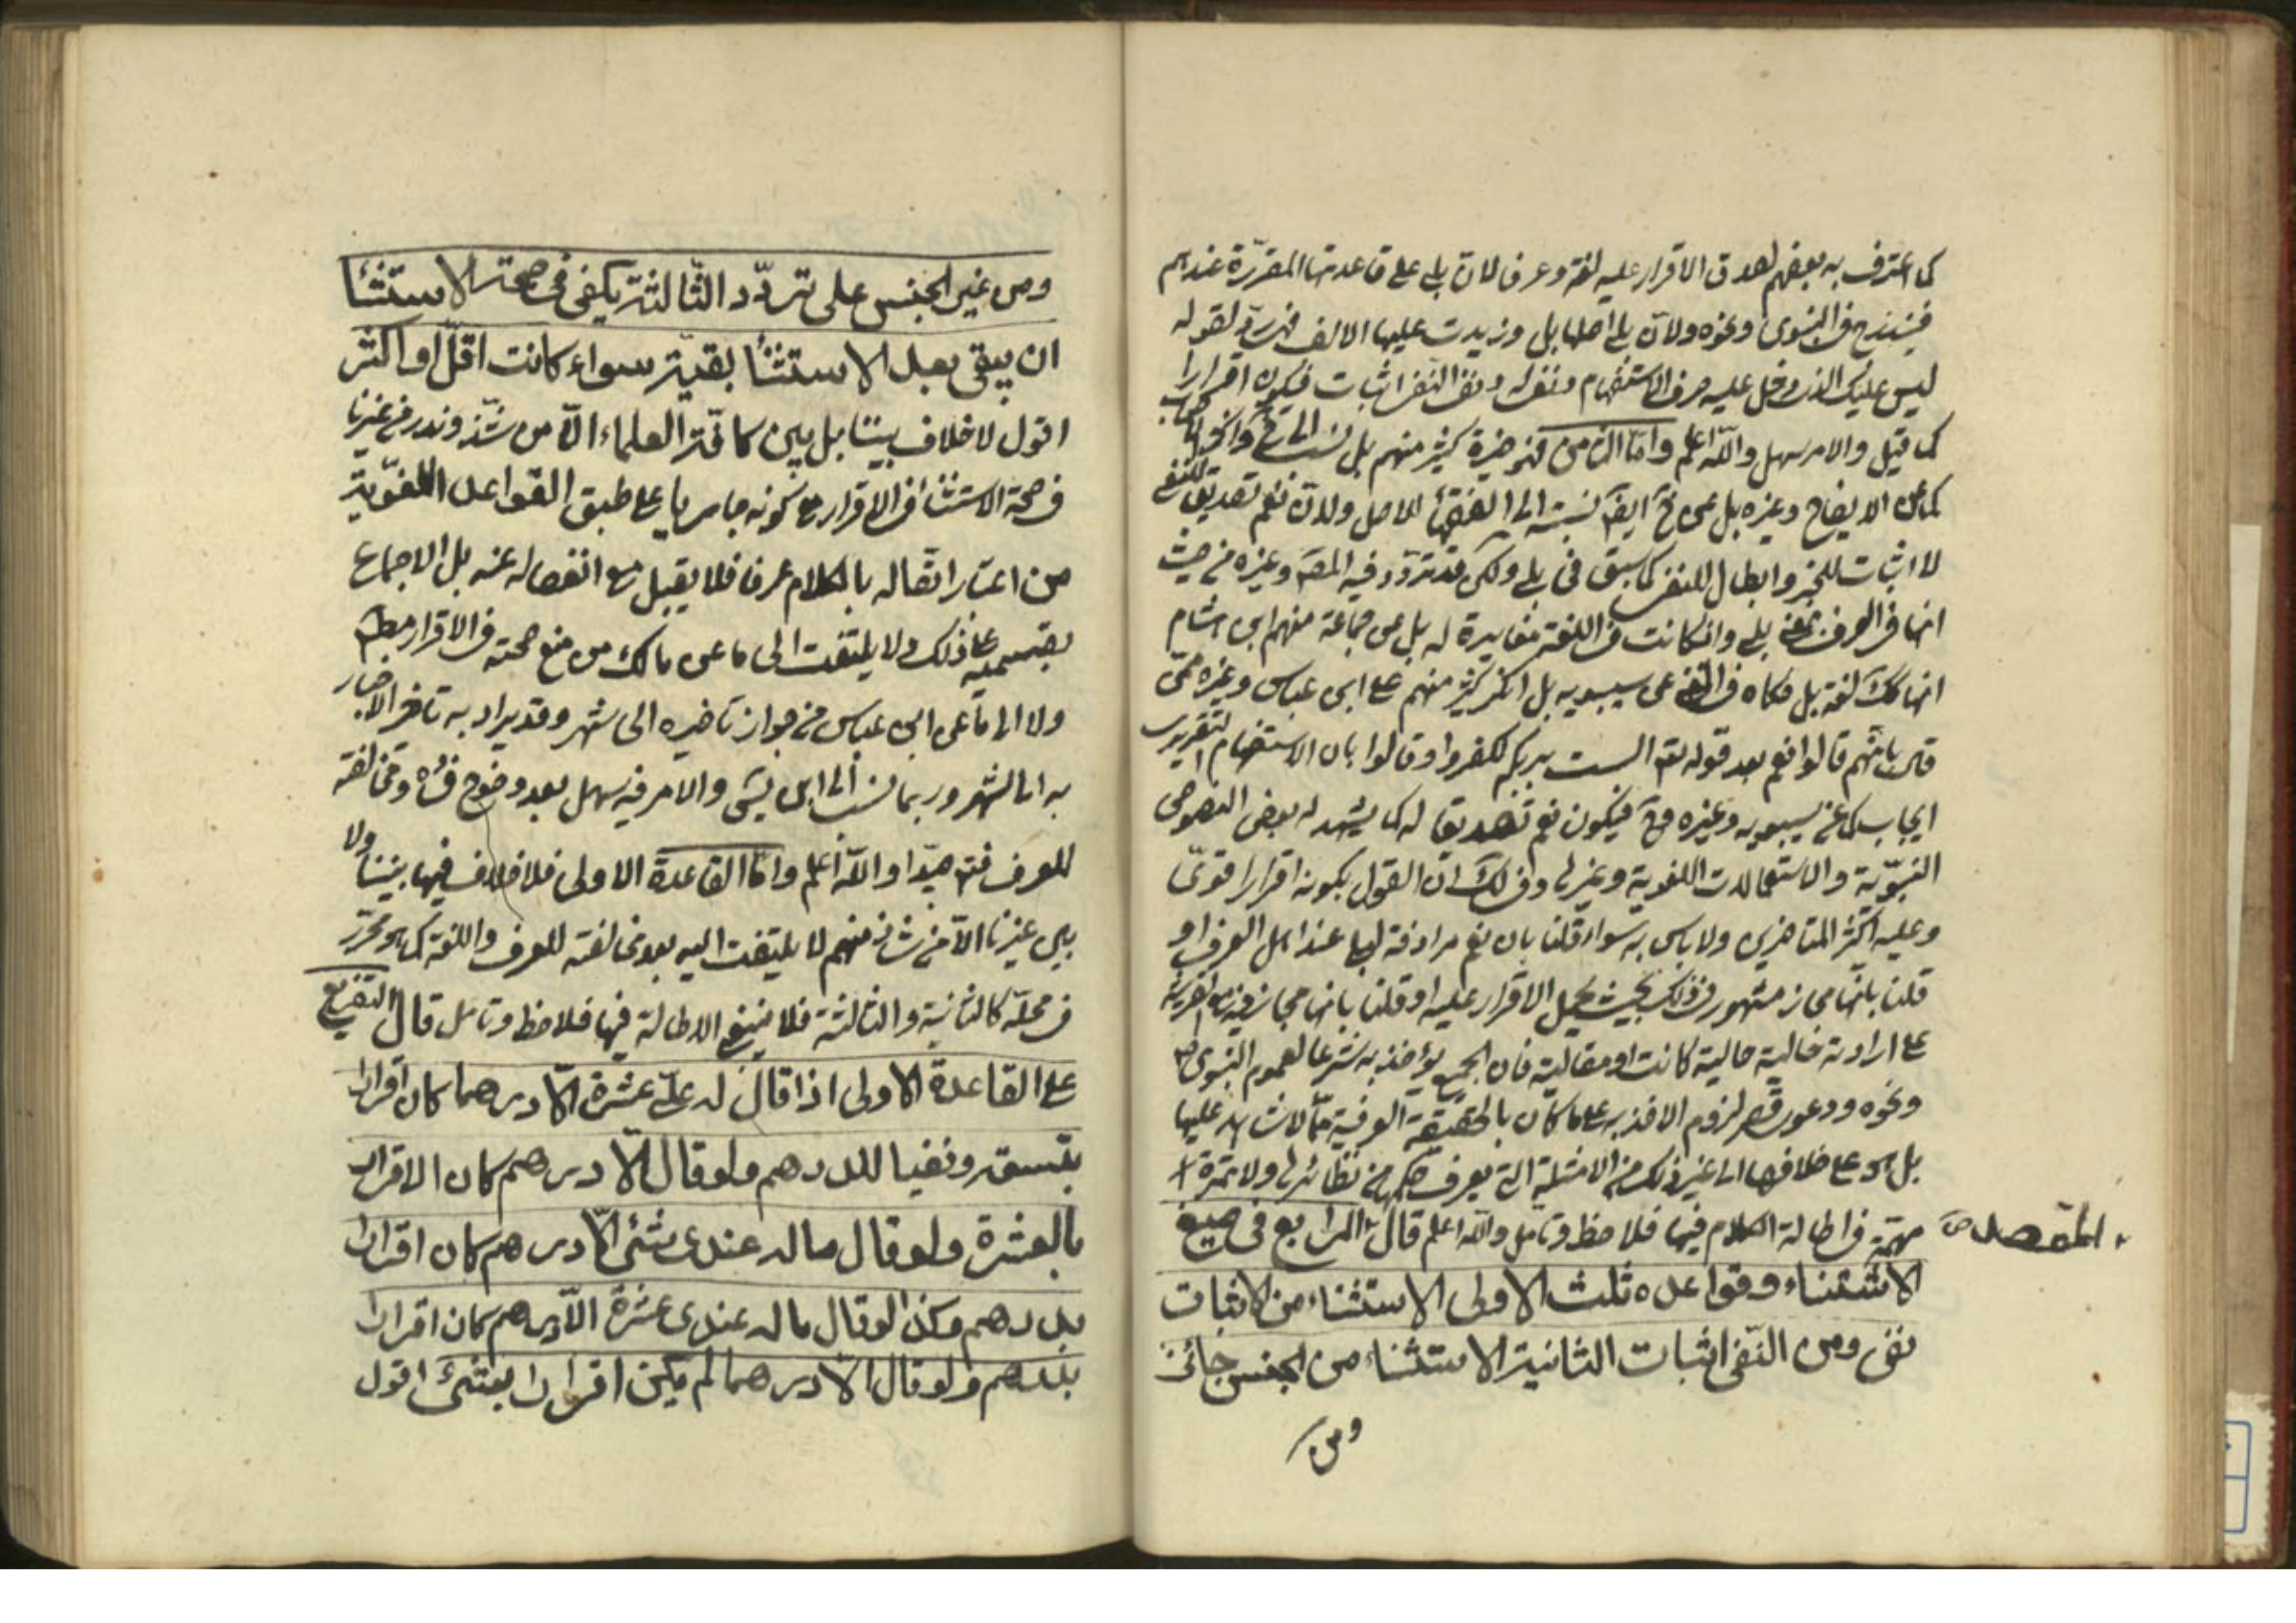 كما اعترف به بعضهم لصدق الاقرار عليه لغة وعرفا لان بلى على قاعدتها المقررة عندهم
فيندرج في النبوي وغيره ولان بلى اصلها بل وزيدت عليها الالف فهي رد لقوله
ليس عليك الذي دخل عليه حرف الاستفهام ونفي له ونفي النفي اثبات فيكون اقرارا
كما قيل والامر سهل والله اعلم واما الثاني فهو خيرة كثير منهم بل نسب الى
كما عن الايضاح وغيره بل عن ايضا نسبته الى الفقهاء للاصل ولان نعم تصديق للنفي
لا اثبات للخبر وابطال للنفي كما سبق في بلى ولكن قد تردد فيه المص وغيره من حيث
انها في العرف بمعنى بلى وان كانت في اللغة مغايرة له بل عن جماعة منهم ابن هشام
انها كك لغة بل حكاه في عن سيبويه بل انكر كثير منهم على ابن عباس وغيره ممن
قال بانهم قالوا نعم بعد قوله تع الست بربكم لكفروا وقالوا بان الاستفهام التقريري
ايجاب كما عن سيبويه وغيره وح فيكون نعم تصديقا له كما يشهد له بعض النصوص
النبوية والاستعمالات اللغوية وغيرها وفي لك ان القول بكونه اقرارا قوي
وعليه اكثر المتاخرين ولا باس به سواء قلنا بان نعم مرادفة لها عند اهل العرف او
قلنا بانها مجاز مشهور في ذلك بحيث يحمل الاقرار عليه او قلنا بانها مجاز فيه مع القرينة
على ارادته خالية حالية كانت او مقالية فان الجميع يؤخذ به شرعا لعموم النبوي
ونحوه ودعوى قصر لزوم الاخذ به على ما كان بالحقيقة العرفية مما لا شاهد عليها
بل هو على خلافها الى غير ذلك من الامثلة التي يعرف حكمها من نظائرها ولا ثمرة
مهمة في اطالة الكلام فيها فلاحظ وتامل والله اعلم قال الرابع في صيغ
المقصد
الاستثناء وقواعده ثلث الاولى الاستثناء من الاثبات
نفي ومن النفي اثبات الثانية الاستثناء من الجنس جائز
ومن
ومن غير الجنس على تردد الثالثة يكفي في صحة الاستثنا
ان يبقى بعد الاستثنا بقية سواء كانت اقل او اكثر
اقول لا خلاف بيننا بل بين كافة العلماء الا من شذ وندر من غيرنا
في صحة الاستثنا في الاقرار مع كونه جاريا على طبق القواعد اللغوية
من اعتبار اتصاله بالكلام عرفا فلا يقبل مع انفصاله عنه بل الاجماع
بقسميه على ذلك ولا يلتفت الى ما عن مالك من منع صحته في الاقرار مط
ولا الى ما عن ابن عباس من جواز تاخيره الى شهر وقد يراد به تاخر الاخبار
به الى الشهر وربما نسب الى ابن والامر فيه سهل بعد وضوح فساده ومخالفته
للعرف فتد جيدا والله اعلم واما القاعدة الاولى فلا خلاف فيها بيننا ولا
بين غيرنا الا من شاذ منهم لا يلتفت اليه بعد مخالفته للعرف واللغة كما هو محرر
في محله كالثانية والثالثة فلا ينبغي الاطالة فيها فلاحظ وتامل قال التفريع
على القاعدة الاولى اذا قال له علي عشرة الا درهما كان اقرارا
بتسعة ونفيا للدرهم ولو قال الا درهم كان الاقرار
بالعشرة ولو قال ما له عندي شئ الا درهم كان اقرارا
بدرهم وكذا لو قال ما له عندي عشرة الا درهم كان اقرارا
بدرهم ولو قال الا درهما لم يكن اقرارا بشئ اقول